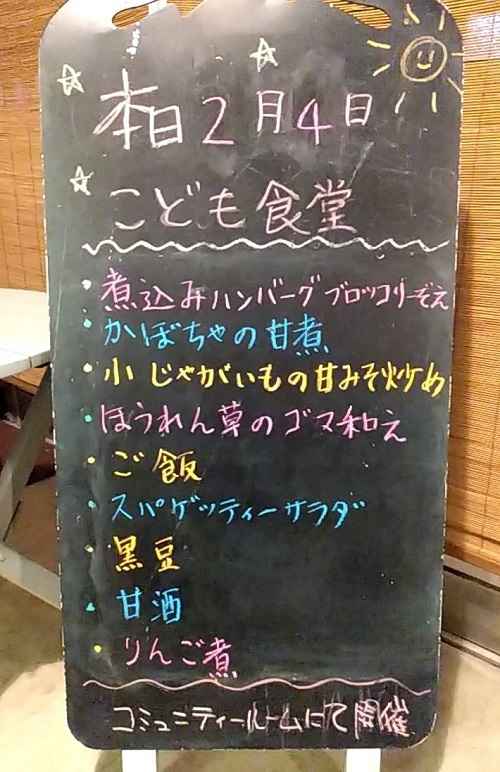 本日2月4日
こども食堂
・煮込みハンバーグブロッコリーぞえ
・かぼちゃの甘煮
・小じゃがいもの甘みそ炒め
・ほうれん草のゴマ和え
・ご飯
・スパゲッティーサラダ
・黒豆
・甘酒
・りんご煮
コミュニティールームにて開催